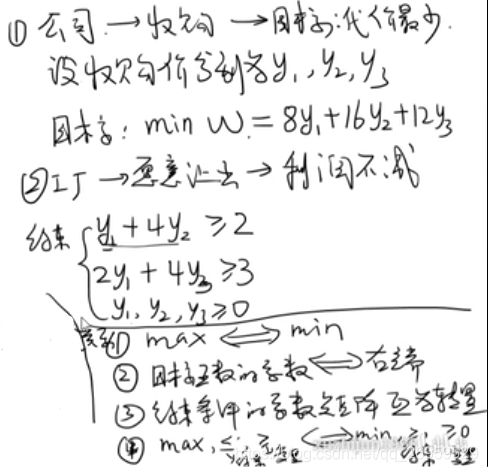 ① 公司 → 收购 → 目标: 代价最少.
设收购价分别为 y₁, y₂, y₃
目标: min W = 8y₁+16y₂+12y₃
② 工厂 → 愿意让出 → 利润不减
约束 { y₁ + 4y₂ ≥ 2
2y₁ + 4y₃ ≥ 3
y₁, y₂, y₃ ≥ 0
关系 ① max ⟺ min
② 目标函数的系数 ⟺ 右端
③ 约束条件的系数矩阵互为转置
④ max, ≤, ≥ ⟺ min, ≥, ≥0
约束 变量 约束 变量